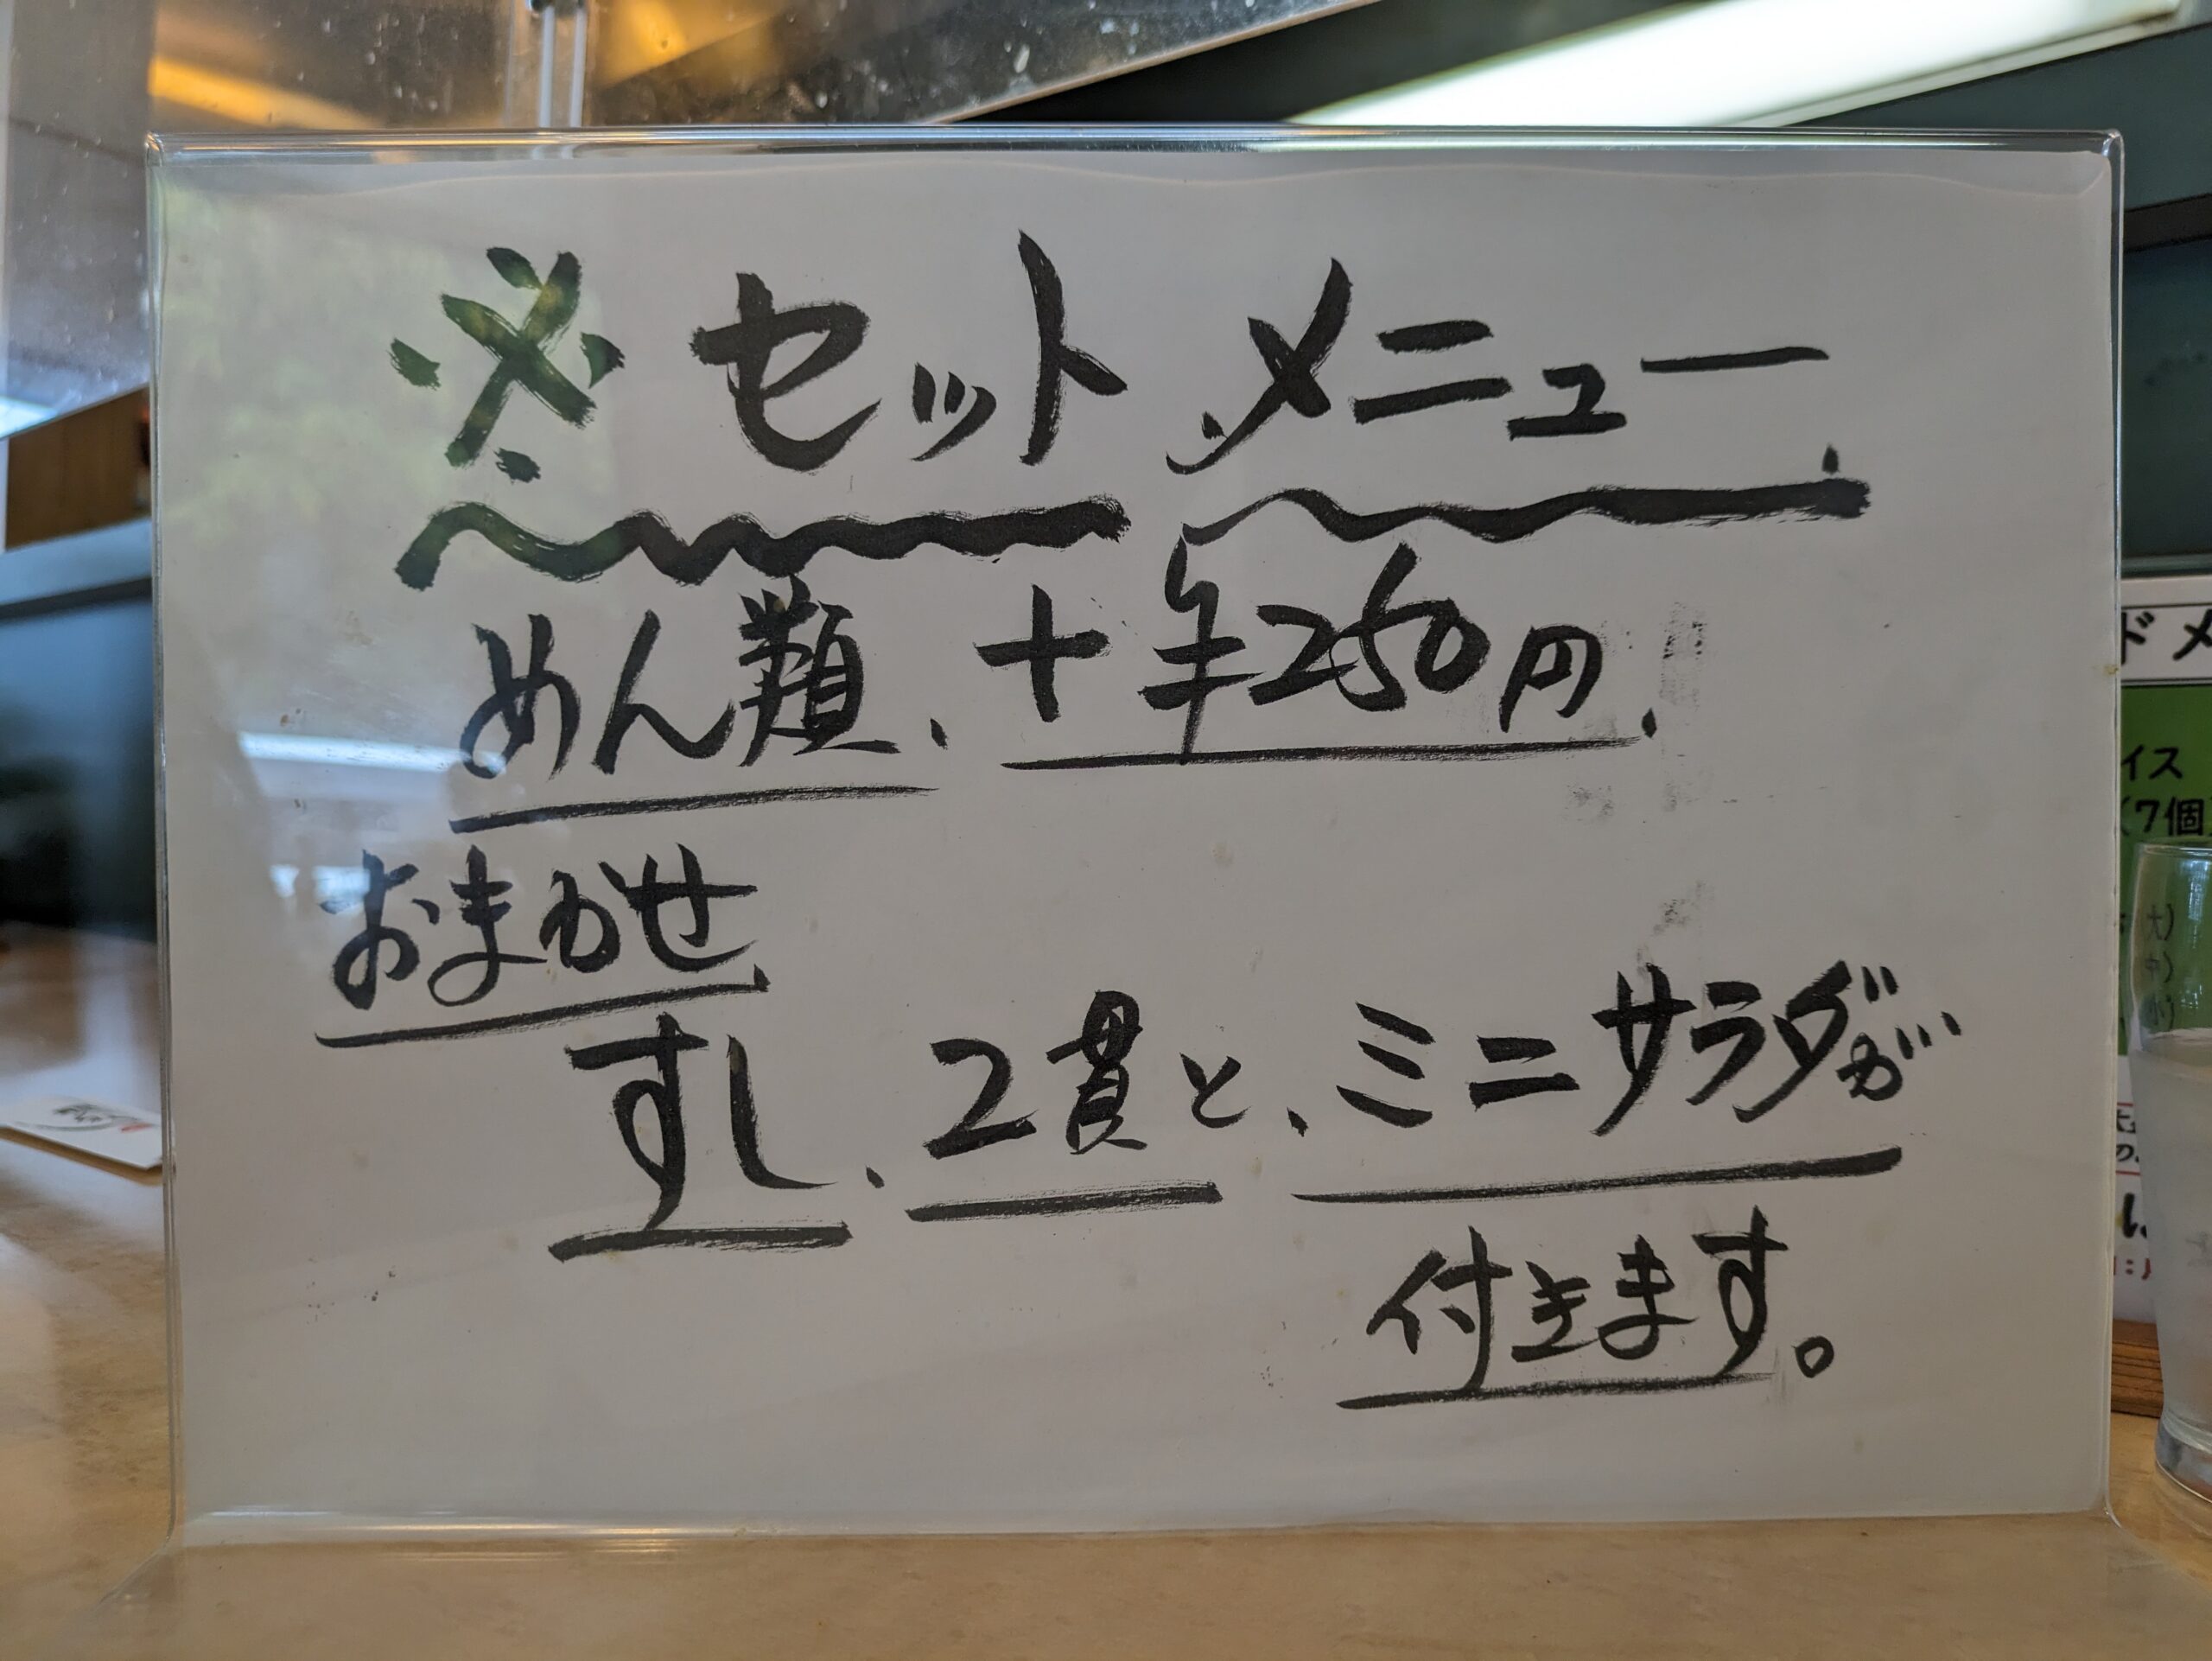 ※ セット メニュー
めん類、+ ¥250円、
おまかせ
すし、2貫と、ミニサラダが
付きます。
ドメ
イス
(7個)
大)
中)
小)